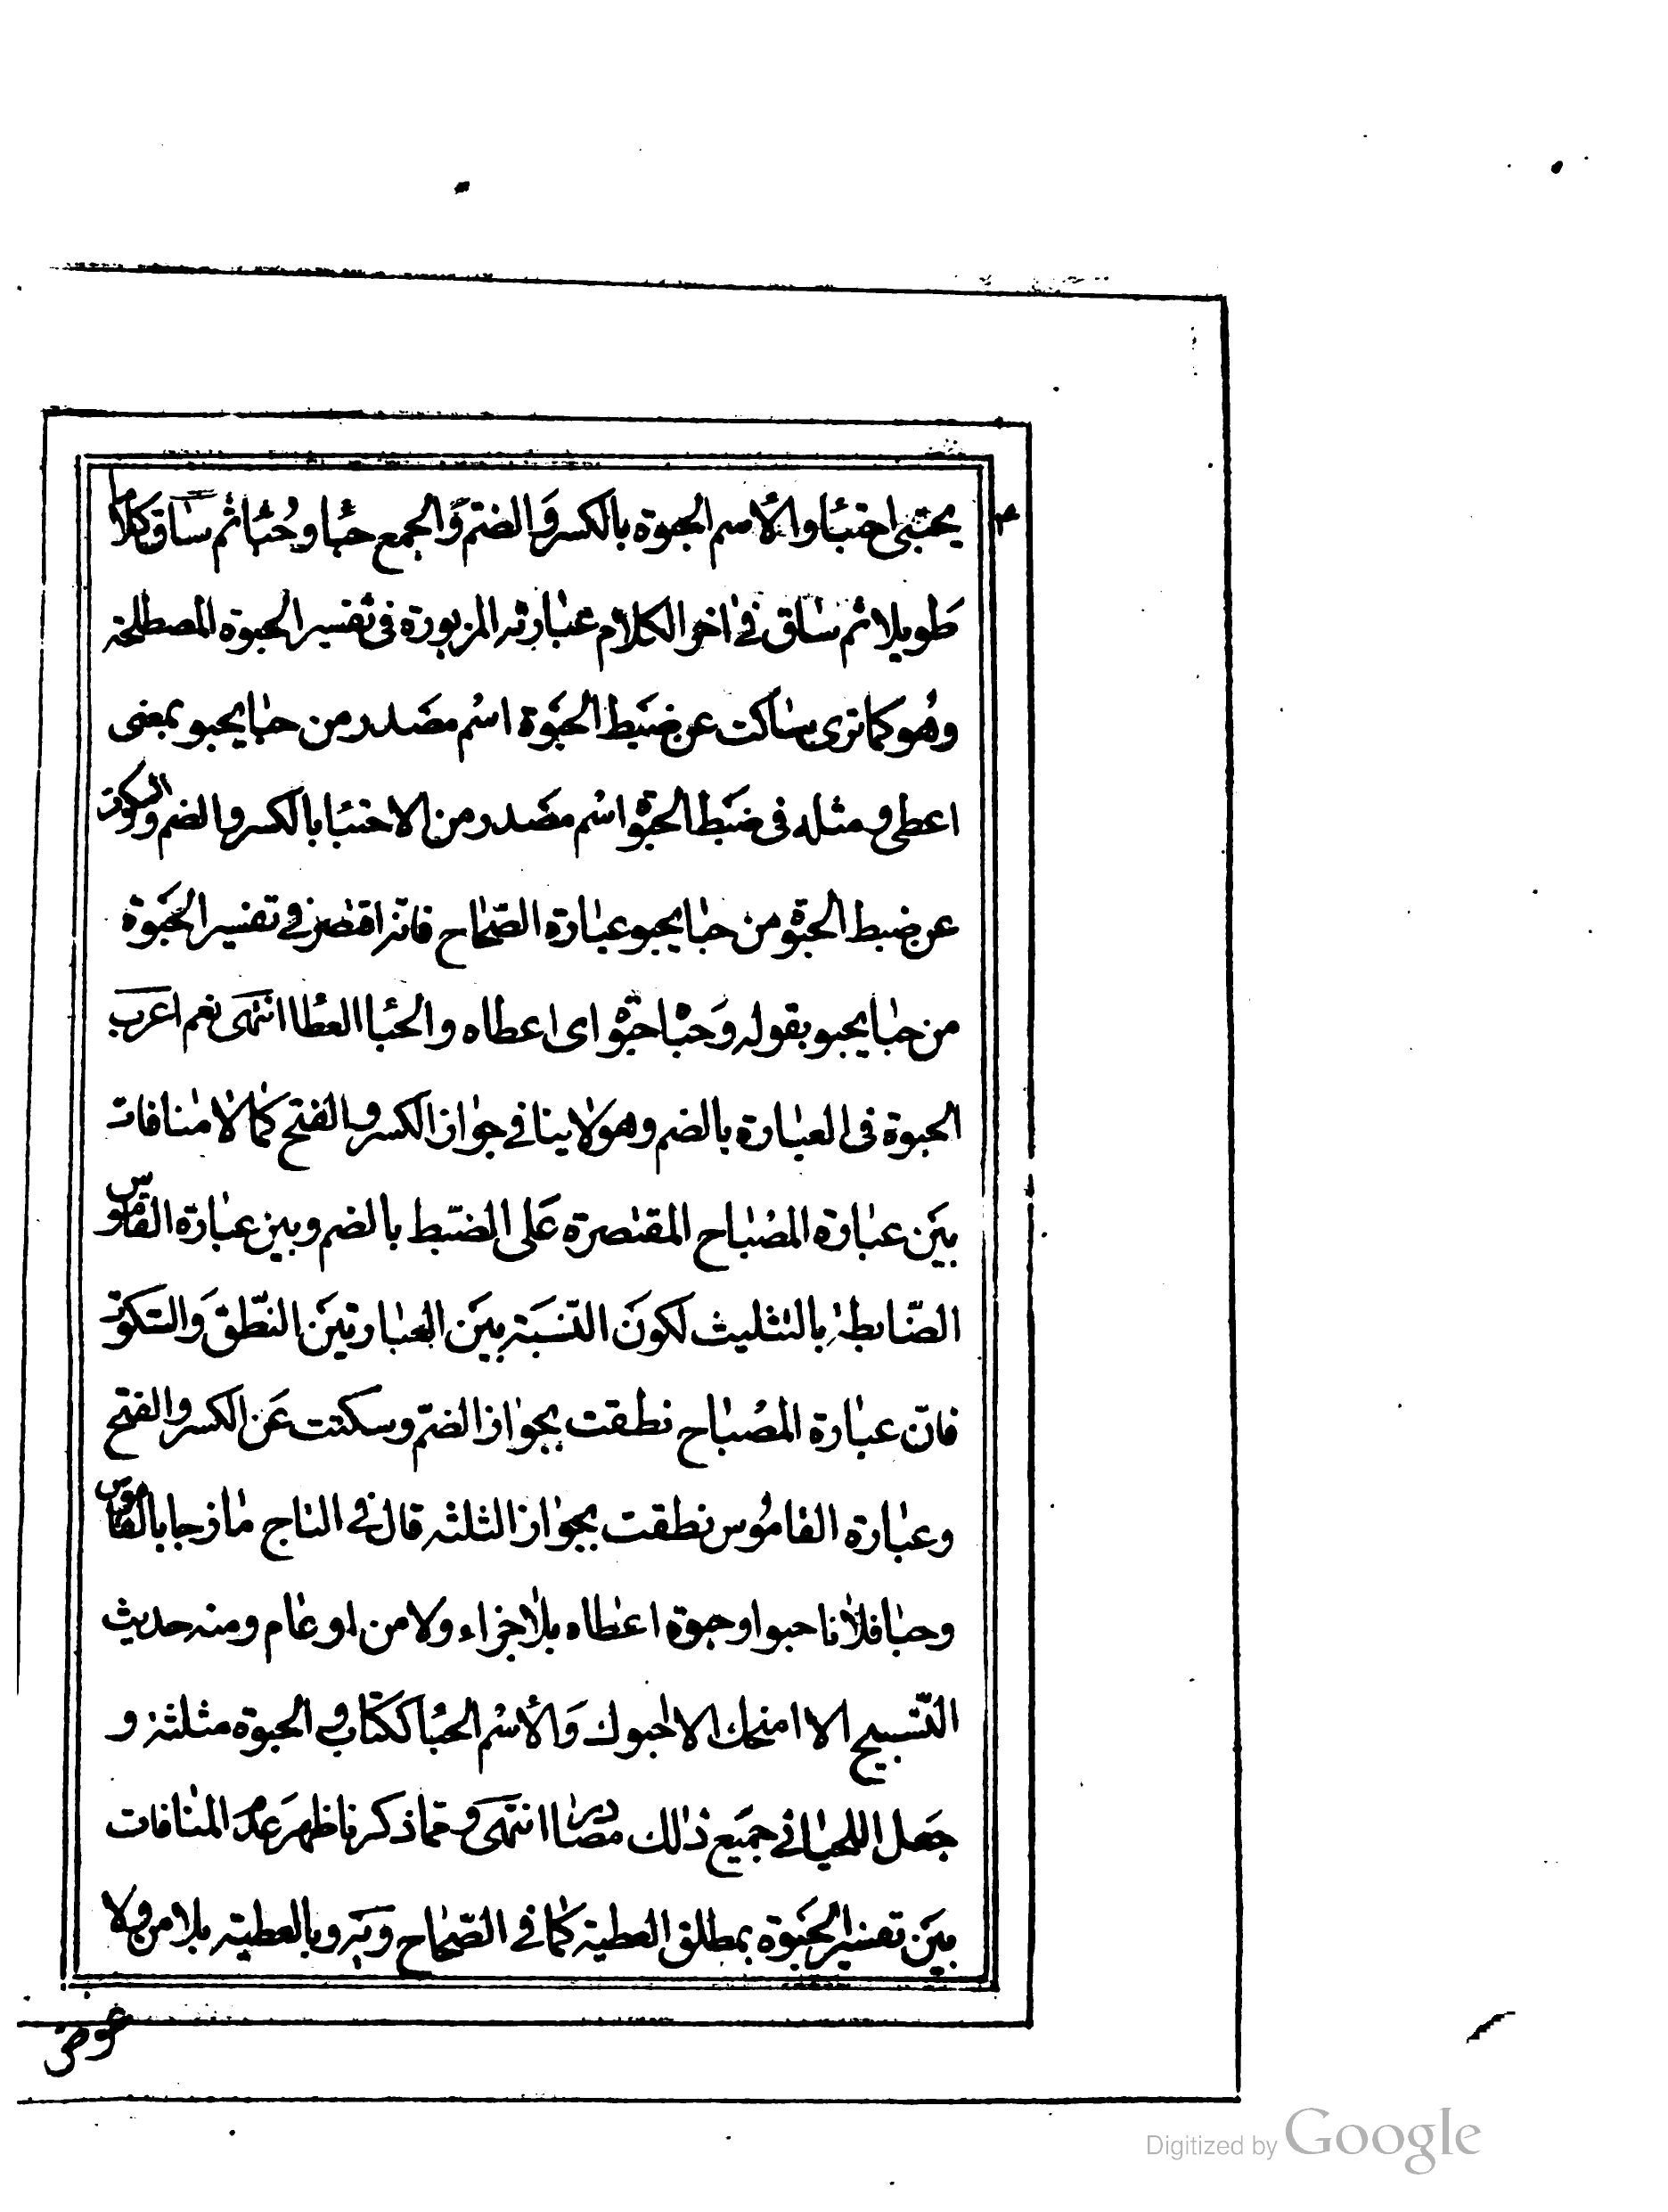 يحتبى احتبئا والأسم الحبوة بالكسر وَالضمّ وَالجمع حبئا وحُبئا ثم سٰاق كلاما
طَويلا ثم سٰاق فى اخر الكلام عبٰارته المزبورة فى تفسير الحبوة المصطلحة
وهُو كما ترى سٰاكت عن ضبَط الحَبَوة اسُم مصَدر من حبٰا يحبو بمعنى
اعطى و مثله فى ضبَط الحَبْوة اسُم مصَدر من الاحتبئا بالكسر والضم والسكوت
عن ضبط الحبْوة من حبٰا يحبو عبٰارة الصّحٰاح فانّه اقتصر فى تفسير الحَبَوة
من حبٰا يحبو بقوله وَحبْا حبْوة اى اعطاه والحبُا العطُا انتهَى نعم اعرَب
الحبوة فى العبٰارة بالضم وهو لا ينافى جوٰاز الكسر والفتح كمٰا لا منٰافات
بيَن عبٰارة المصُبٰاح المقتصرة عَلى الضّبط بالضم وبين عبٰارة القاموس
الضّابطة بالتثليث لكونَ النّسَبة بيَن العبٰارتيَن النّطق وَالسّكوت
فانّ عبٰارة المصُبٰاح نطقت بجوٰاز الضمّ وسكتت عَن الكسر والفتح
وعبٰارة القامُوس نطقت بجوٰاز الثلثه قال فى التاج مٰازجا بالقاموس
وحبٰا فلاٰنا حبوا وحبوة اعطٰاه بلاٰ جزاء ولا من او عٰام ومنه حديث
التّسبيح الا امنحك الا احبوك وَالأسُم الحبُا ككتٰاب و الحبوة مثلثة و
جَعل اللحيٰانى جميَع ذٰلك مصٰادر انتهَى و ممّا ذكرنا ظهرَ عدَم المنٰافات
بيَن تفسير الحَبَوة بمطلق العطية كمٰا فى الصّحٰاح وَبَ‍رو بالعطيّة بلا من ولا
عوض
Digitized by Google